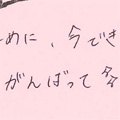 めに、今でき
がんばって多